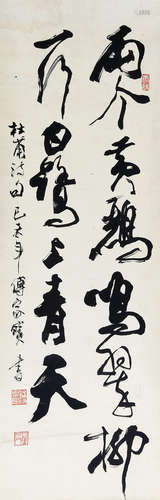 两个黄鹂鸣翠柳
一行白鹭上青天
杜甫诗句 己未年 傅家宝书